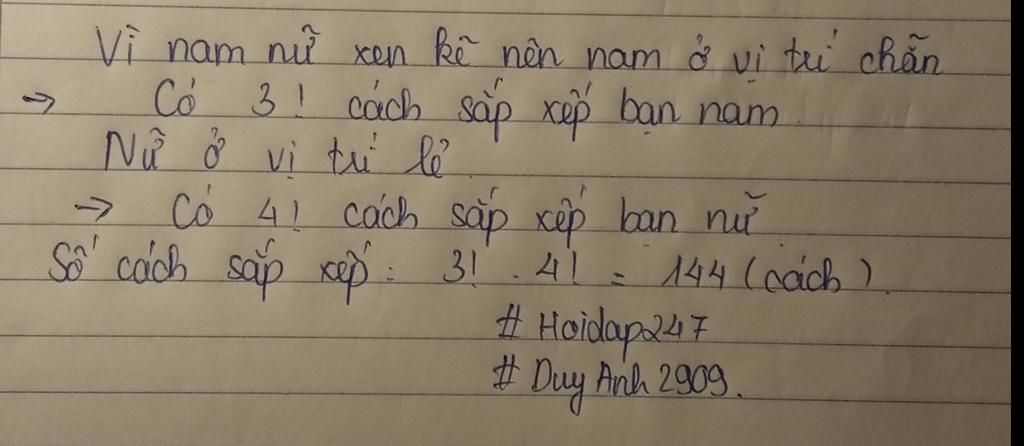 Vì nam nữ xen kẽ nên nam ở vị trí chẵn
→ Có 3! cách sắp xếp bạn nam.
Nữ ở vị trí lẻ.
→ Có 4! cách sắp xếp bạn nữ
Số cách sắp xếp: 3! . 4! = 144 (cách).
# Hoidap247
# Duy Anh 2909.